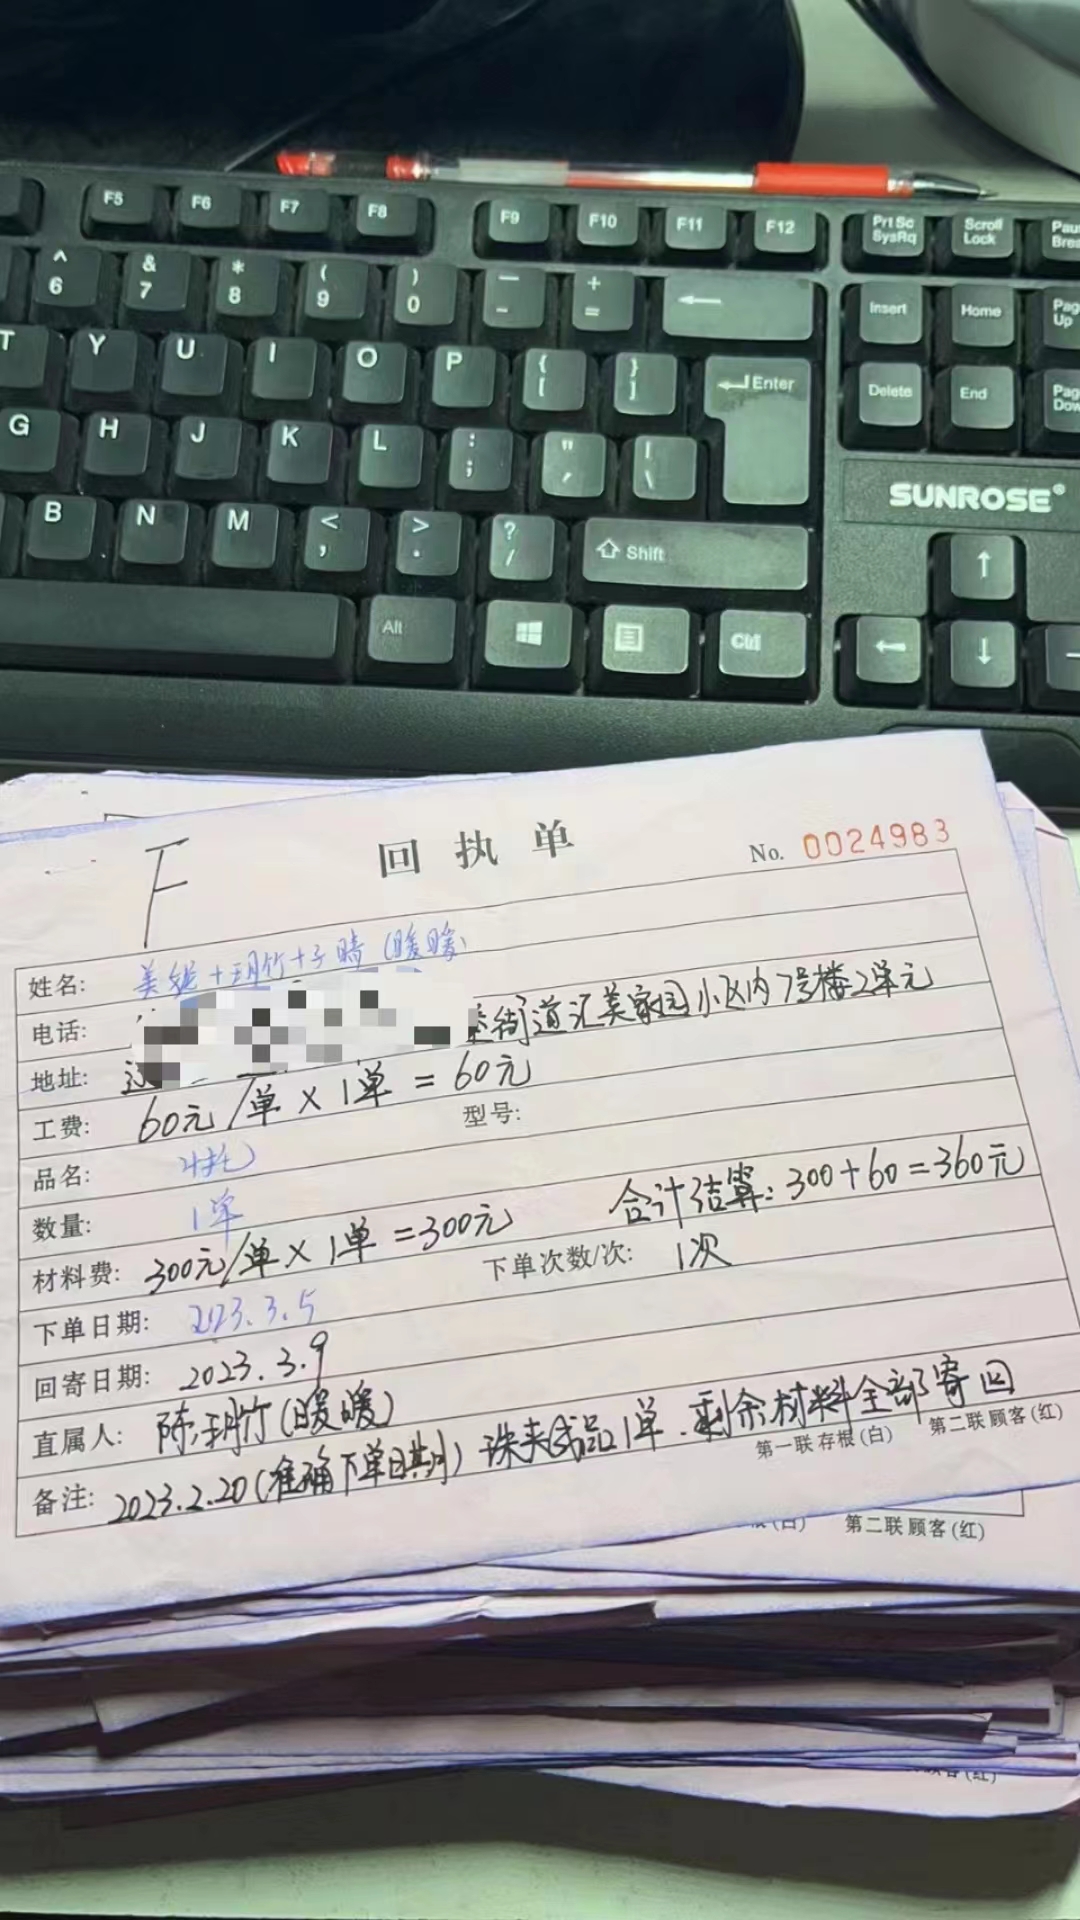 F5 F6 F7 F8 F9 F10 F11 F12 Prt Sc SysRq Scroll Lock
^ 6 & 7 * 8 ( 9 ) 0 — - + = Insert Home Page Up
T Y U I O P { [ } ] Enter Delete End
G H J K L : ; " ' | \
SUNROSE®
B N M < , > . ? / Shift ↑
Alt Ctrl ← ↓
F
回执单
No. 0024983
姓名: 美 +玥竹+子晴(暖暖)
电话:
地址: 街道汇美家园小区内7号楼2单元
工费: 60元/单×1单=60元 型号:
品名:
数量: 1单
合计结算:300+60=360元
材料费: 300元/单×1单=300元 下单次数/次: 1次
下单日期: 2023.3.5
回寄日期: 2023.3.9
直属人: 陈玥竹(暖暖)
备注: 2023.2.20(准确下单日期) 珠夹成品1单.剩余材料全部寄回
第一联存根(白) 第二联顾客(红)
第二联顾客(红)